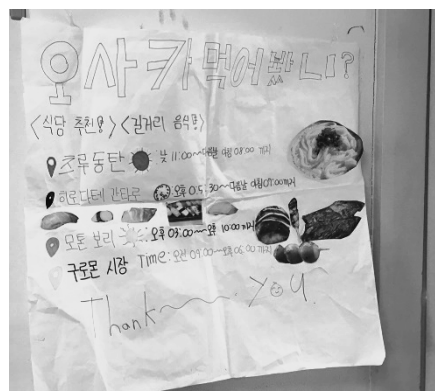 오사카 먹어 봤니?
<식당 추천!> <길거리 음식!>
츠루동탄 낮 11:00~다음날 아침 08:00 까지
히로다테 간타로 오후 05:30~다음날 아침 07:00까지
모톤 보리 오후 03:00~오후 10:00까지
구로몬 시장 Time: 오전 09:00~오후 06:00 까지
Thank you.